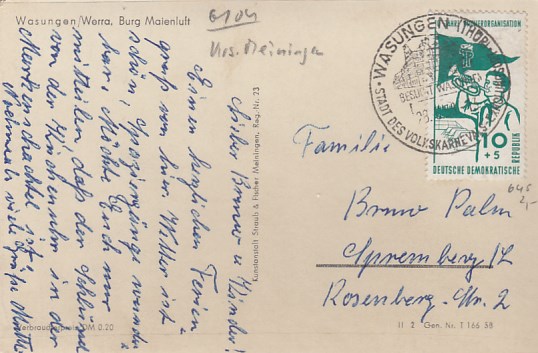 Wasungen/Werra, Burg Maienluft
6104
Krs. Meiningen
Lieber Bruno u. Kinder!
Einen herzlichen Ferien-
gruß von hier. Wetter ist
schön, Spaziergänge wunder-
bar. Möchte Euch nur
mitteilen daß der Schlüssel
von der Küchenuhr in der
Schachtel ist.
Nochmals viele Grüße Mutti
Kunstanstalt Straub & Fischer Meiningen, Reg.-Nr. 23
Verbraucherpreis DM 0.20
WASUNGEN (THÜR)
BESUCHT WASUNGEN
STADT DES VOLKSKARNEVALS
PIONIERORGANISATION
10
+5
DEUTSCHE DEMOKRATISCHE
REPUBLIK
645
2,-
Familie
Bruno Palm
Spremberg/L
Rosenberg-Str. 2
II 2 Gen. Nr. T 166 58